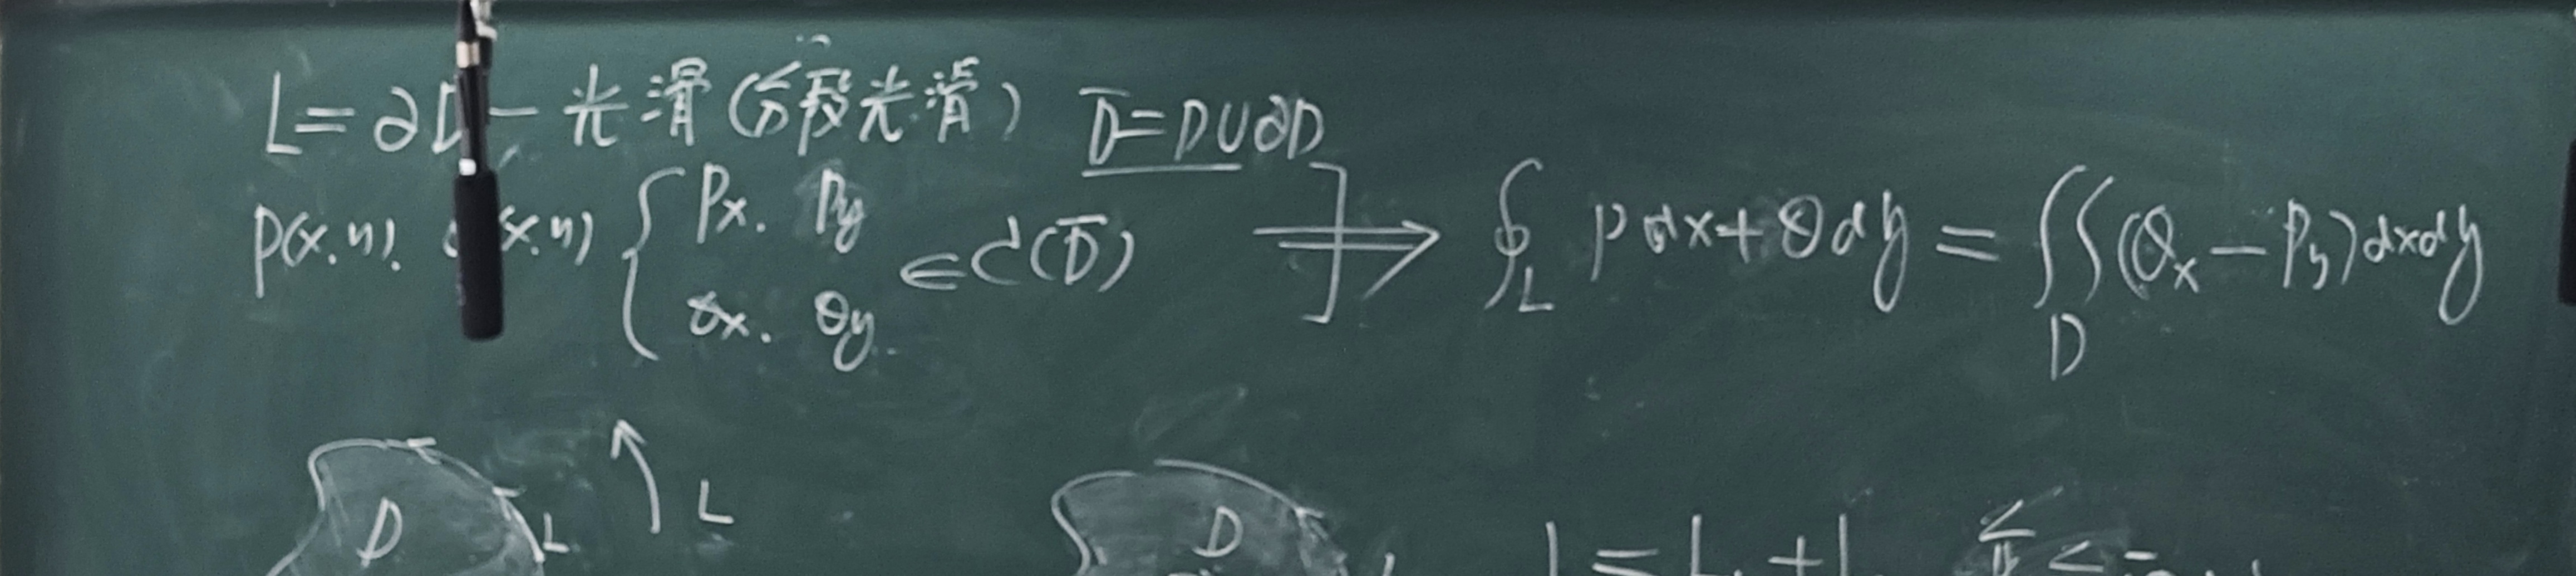 L = ∂D — 光滑 (分段光滑) D̅ = D∪∂D
P(x.y). (x.y) { Px. Py
Qx. Qy ∈ C(D̅) ] ⟹ ∮_L Pdx + Qdy = ∬_D (Qx − Py)dxdy
D L L D